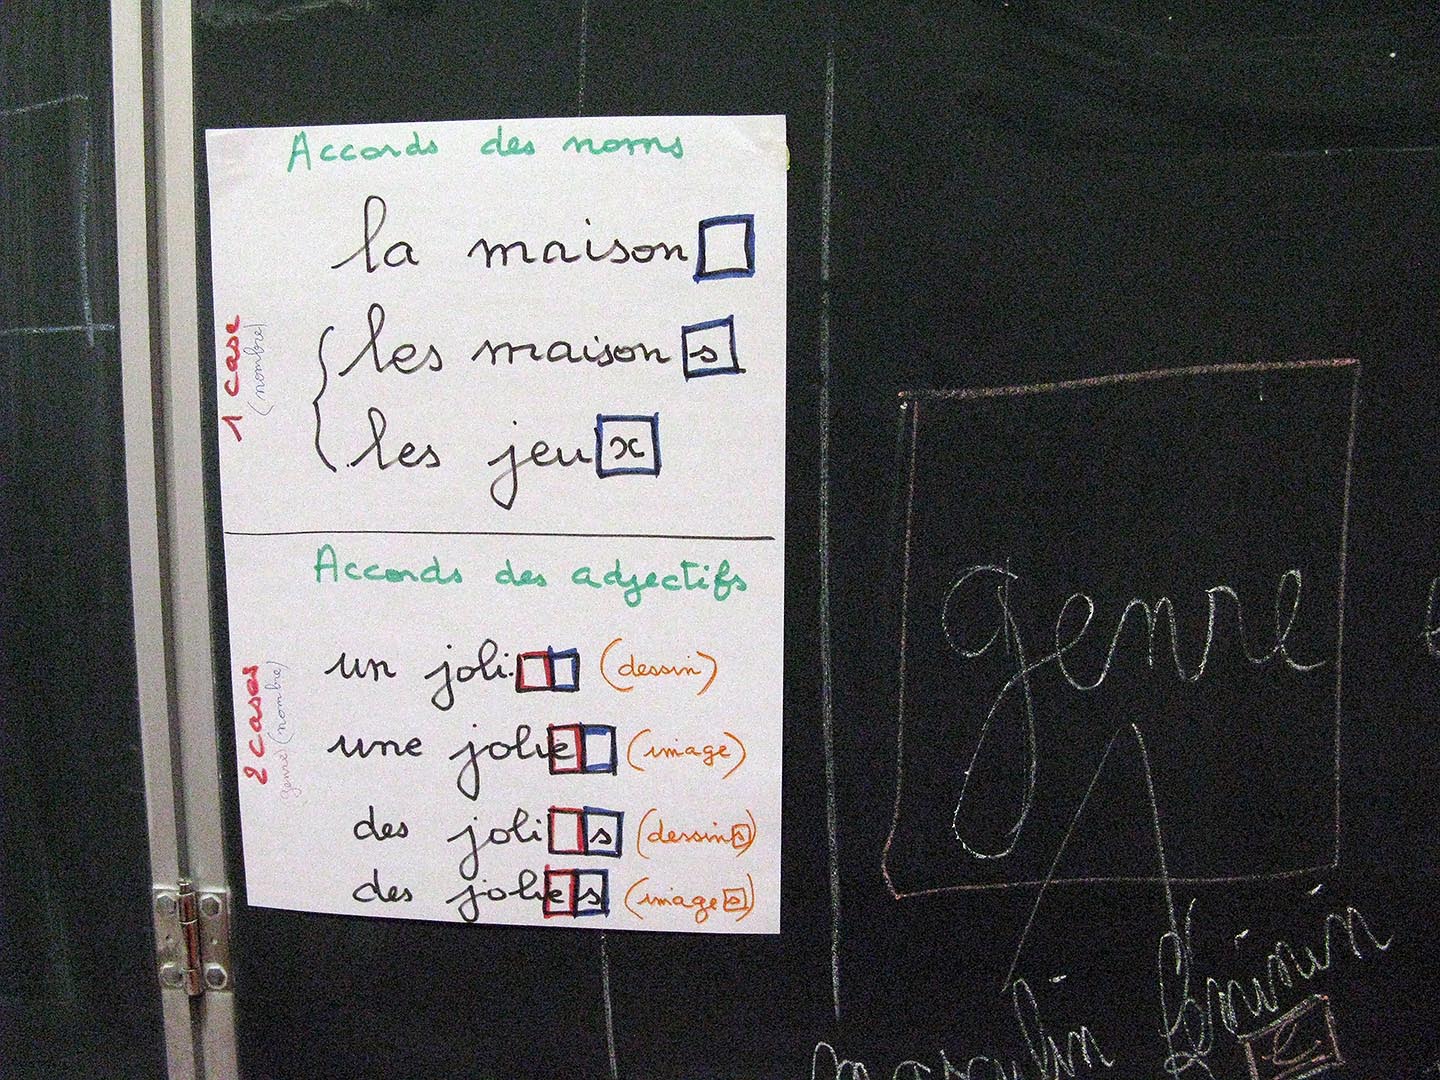 Accords des noms
la maison
les maisons
les jeux
1 case
(nombre)
Accords des adjectifs
un joli (dessin)
une jolie (image)
des jolis (dessins)
des jolies (images)
2 cases
genre (nombre)
genre
masculin féminin
e